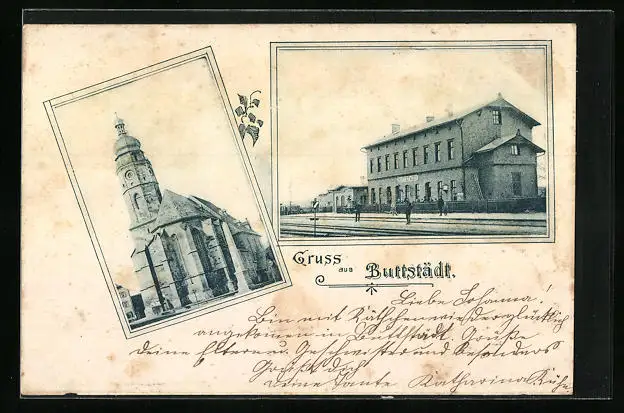 Gruss
aus
Buttstädt.
Liebe Johanna!
Bin mit Käthchen wieder glücklich
angekommen in Buttstädt. Grüße
deine Eltern u. Geschwister und besonders
Grüßt dich
deine Tante Katharina